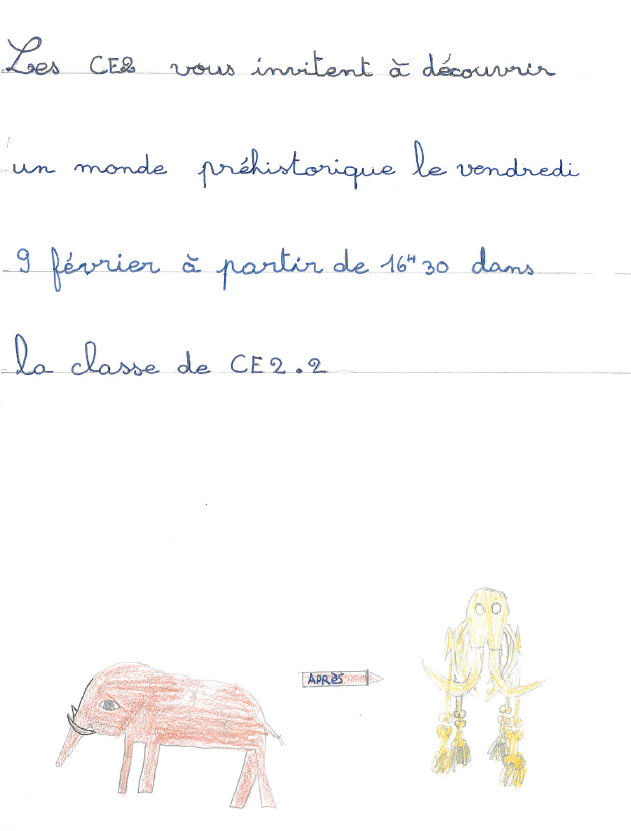 Les CE2 vous invitent à découvrir
un monde préhistorique le vendredi
9 février à partir de 16H30 dans
la classe de CE2.2
APRÈS